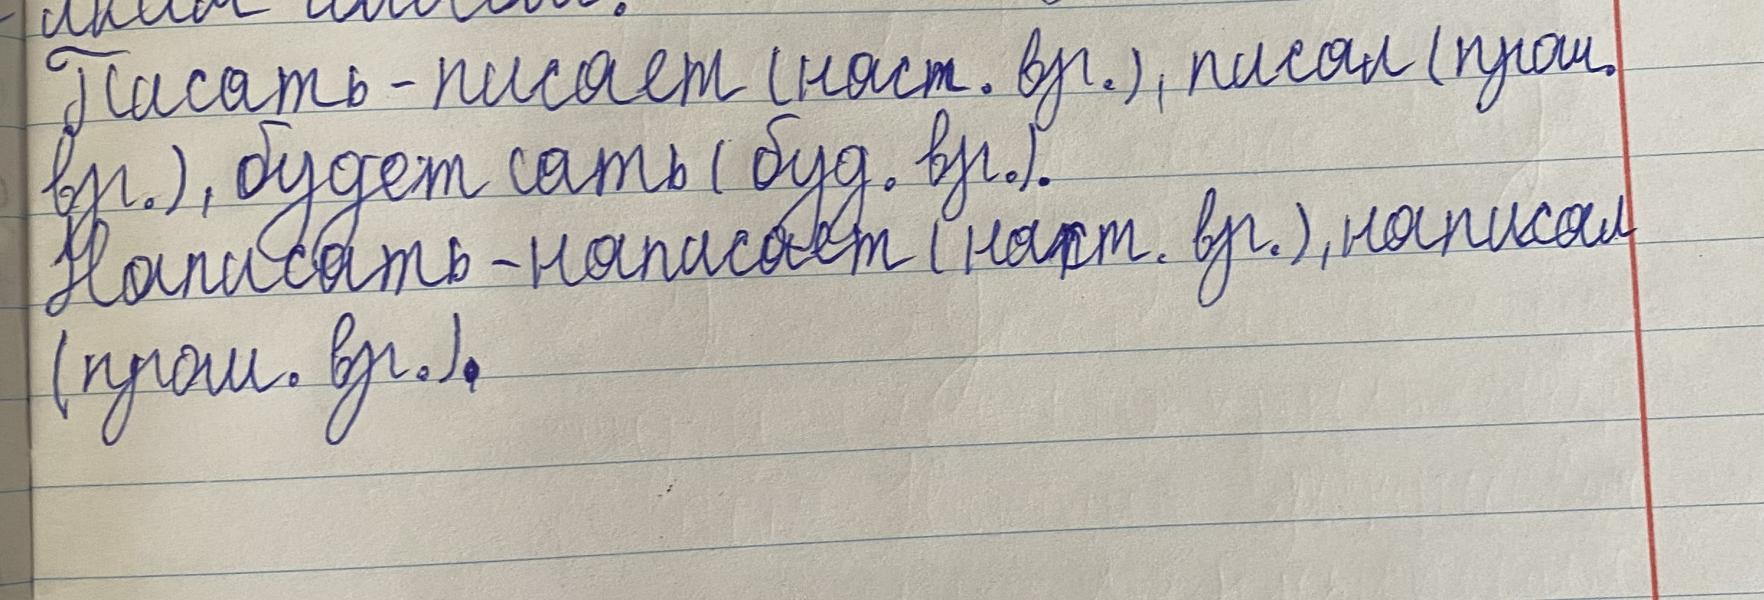 Писать - писает (наст. вр.), писал (прош.
вр.), будет сать (буд. вр.).
Написать - написает (наст. вр.), написал
(прош. вр.).